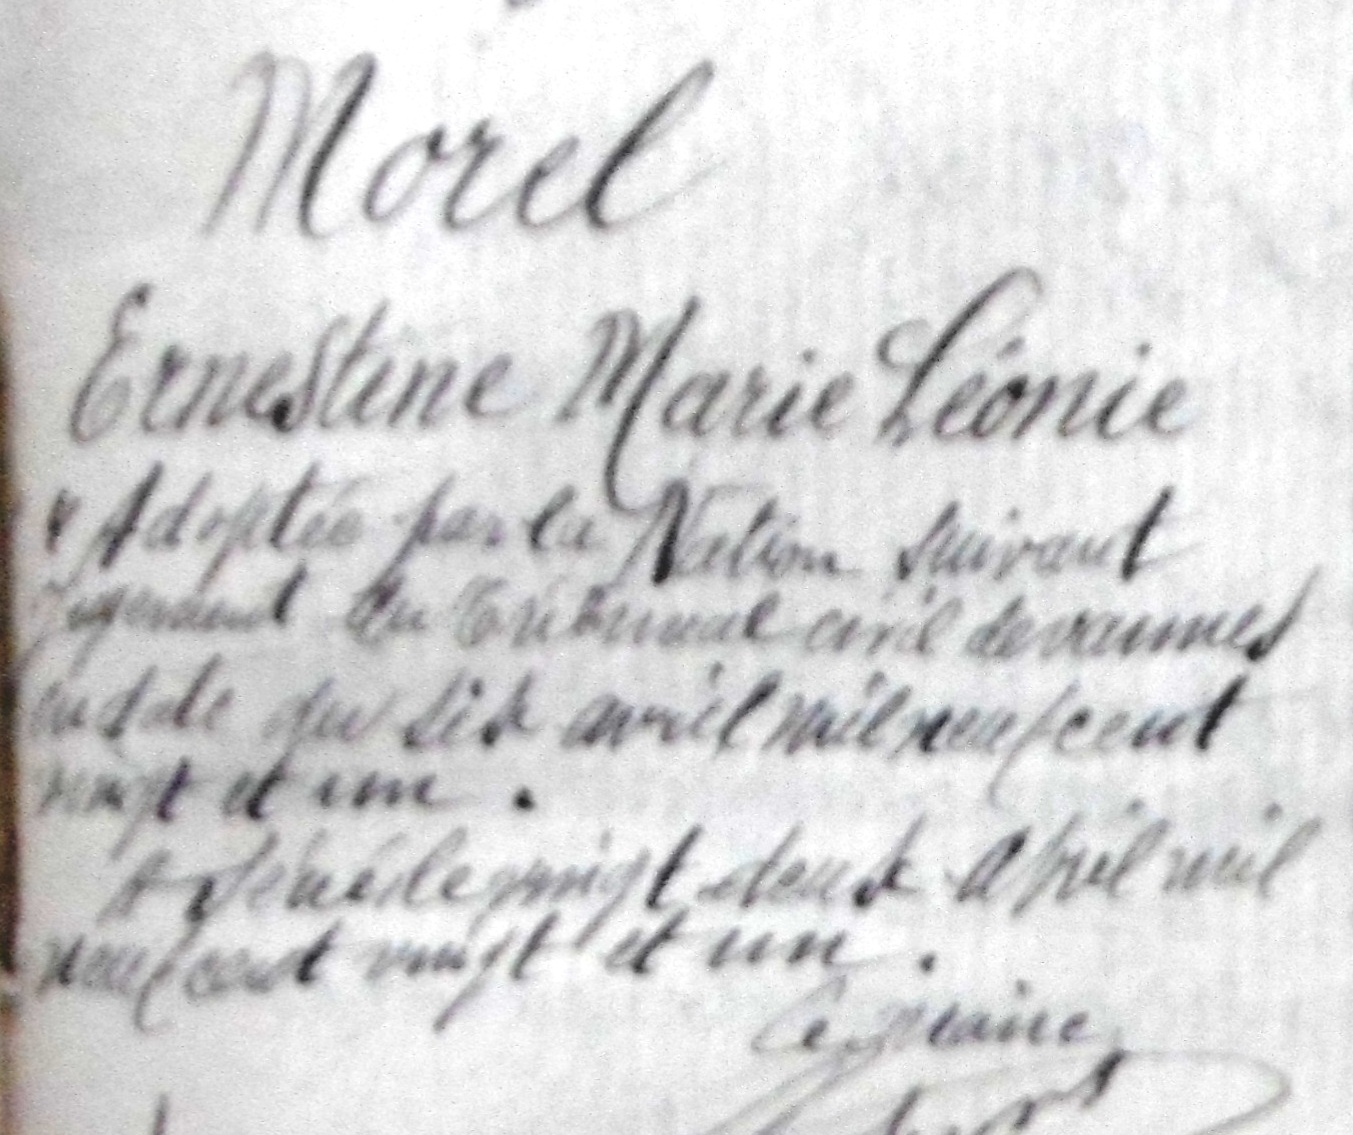 Morel
Ernestine Marie Léonie
Adoptée par la Nation suivant
jugement du Tribunal civil de vannes
en date du six avril mil neuf cent
vingt et un .
A Séné le vingt deux Avril mil
neuf cent vingt et un .
Le Maire